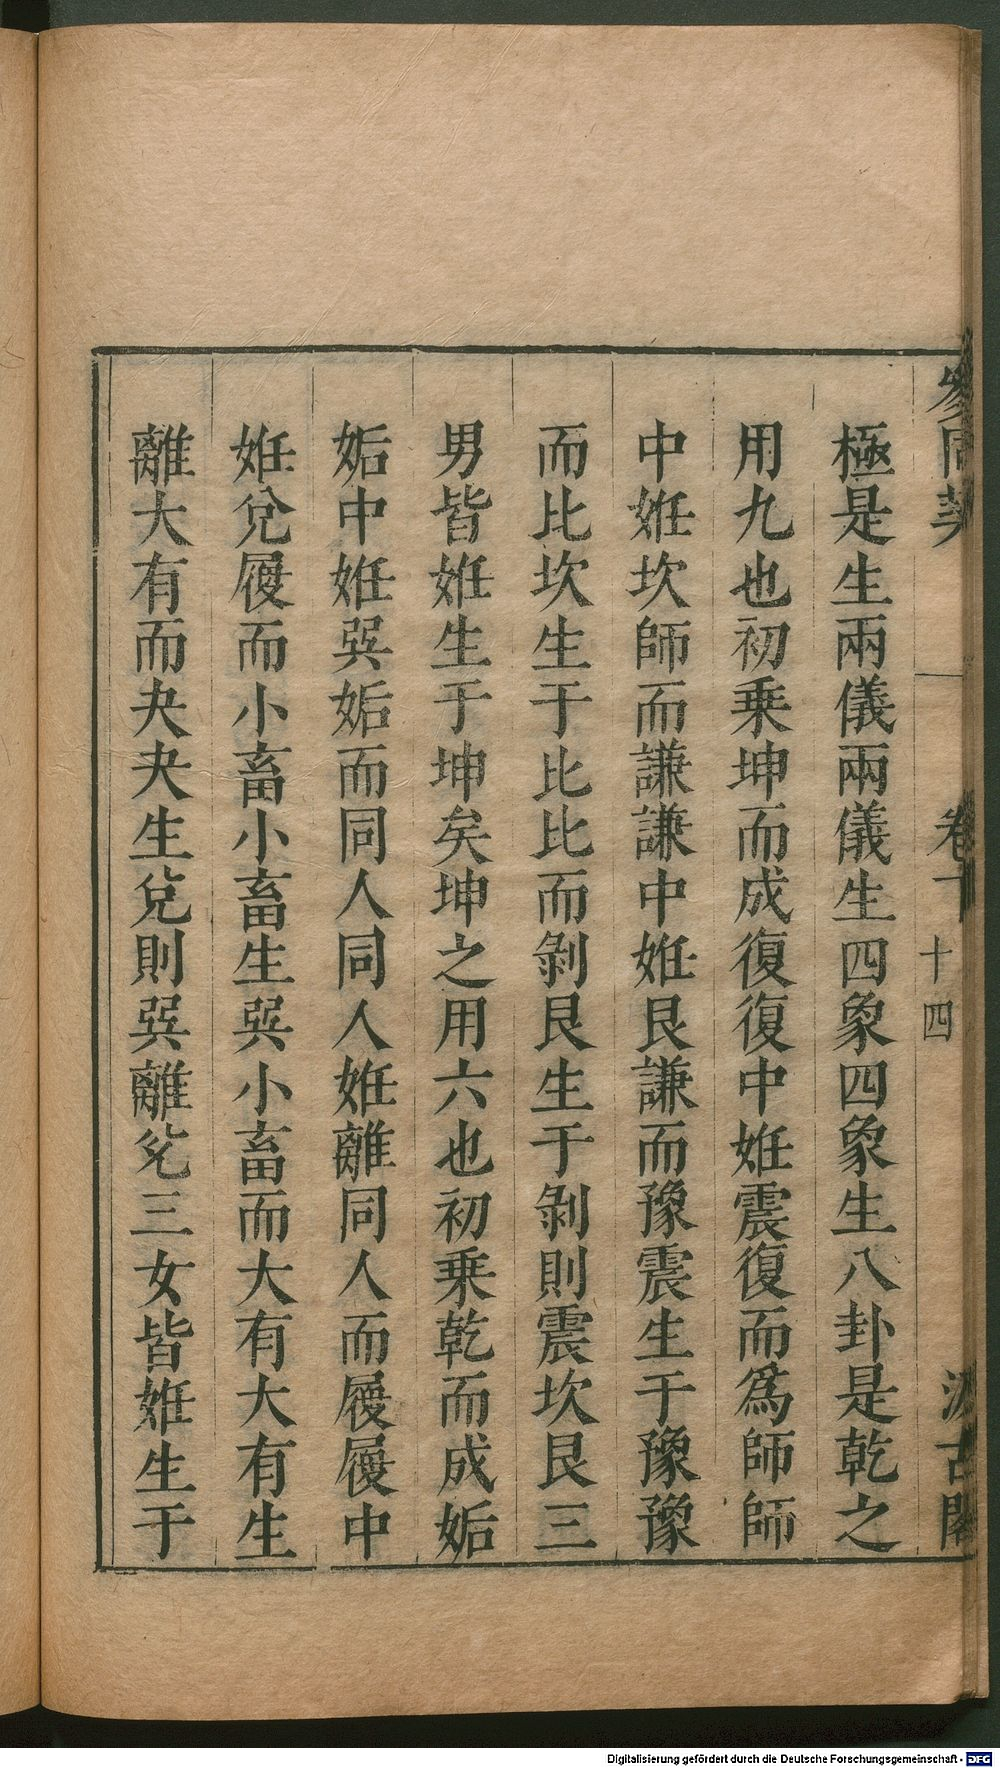 參同契 卷下 十四 汲古閣
極是生兩儀兩儀生四象四象生八卦是乾之
用九也初乗坤而成復復中姙震復而爲師師
中姙坎師而謙謙中姙艮謙而豫震生于豫豫
而比坎生于比比而剝艮生于剝則震坎艮三
男皆姙生于坤矣坤之用六也初乗乾而成姤
姤中姙巽姤而同人同人姙離同人而履履中
姙兌履而小畜小畜生巽小畜而大有大有生
離大有而夬夬生兌則巽離兌三女皆姙生于
Digitalisierung gefördert durch die Deutsche Forschungsgemeinschaft - DFG